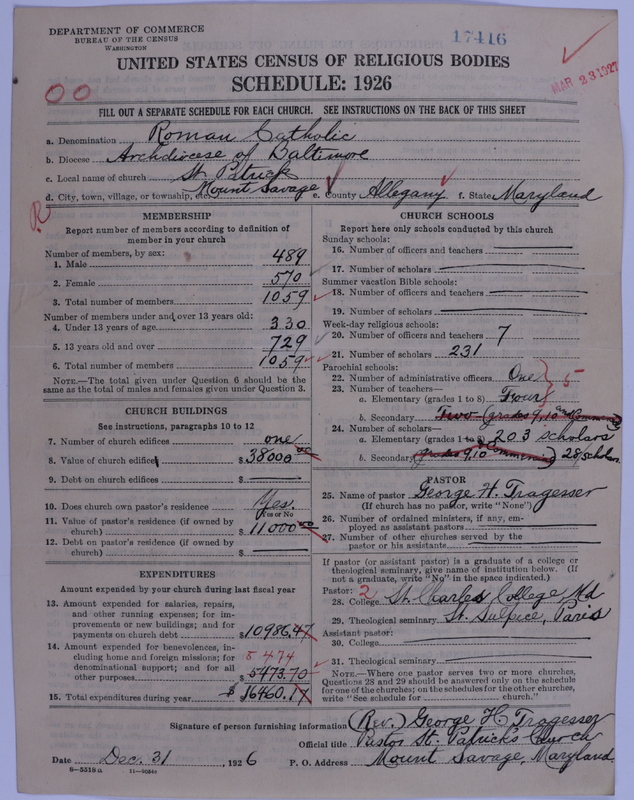 DEPARTMENT OF COMMERCE
BUREAU OF THE CENSUS
WASHINGTON
17416
MAR 23 1927
UNITED STATES CENSUS OF RELIGIOUS BODIES
SCHEDULE: 1926
FILL OUT A SEPARATE SCHEDULE FOR EACH CHURCH. SEE INSTRUCTIONS ON THE BACK OF THIS SHEET
a. Denomination Roman Catholic
b. Diocese Archdiocese of Baltimore
c. Local name of church St. Patrick
d. City, town, village, or township, etc. Mount Savage e. County Allegany f. State Maryland
R
MEMBERSHIP
Report number of members according to definition of
member in your church
Number of members, by sex:
1. Male 489
2. Female 570
3. Total number of members 1059
Number of members under and over 13 years old:
4. Under 13 years of age 330
5. 13 years old and over 729
6. Total number of members 1059
NOTE.—The total given under Question 6 should be the
same as the total of males and females given under Question 3.
CHURCH BUILDINGS
See instructions, paragraphs 10 to 12
7. Number of church edifices one
8. Value of church edifice $ 38000 00
9. Debt on church edifices $
10. Does church own pastor's residence Yes.
(Yes or No)
11. Value of pastor's residence (if owned by
church) $ 11000 00
12. Debt on pastor's residence (if owned by
church) $
EXPENDITURES
Amount expended by your church during last fiscal year
13. Amount expended for salaries, repairs,
and other running expenses; for im-
provements or new buildings; and for
payments on church debt $ 10986.47
14. Amount expended for benevolences, in-
cluding home and foreign missions; for 5474
denominational support; and for all
other purposes $ 5473.70
15. Total expenditures during year $ 16460.17
CHURCH SCHOOLS
Report here only schools conducted by this church
Sunday schools:
16. Number of officers and teachers
17. Number of scholars
Summer vacation Bible schools:
18. Number of officers and teachers
19. Number of scholars
Week-day religious schools:
20. Number of officers and teachers 7
21. Number of scholars 231
Parochial schools:
22. Number of administrative officers One
23. Number of teachers— 5
a. Elementary (grades 1 to 8) Four
b. Secondary Two (grades 9, 10 and Commercial)
24. Number of scholars—
a. Elementary (grades 1 to 8) 203 scholars
b. Secondary (grades 9, 10 Commercial) 28 scholars
PASTOR
25. Name of pastor George H. Tragesser
(If church has no pastor, write "None")
26. Number of ordained ministers, if any, em-
ployed as assistant pastors
27. Number of other churches served by the
pastor or his assistants
If pastor (or assistant pastor) is a graduate of a college or
theological seminary, give name of institution below. (If
not a graduate, write "No" in the space indicated.)
Pastor: 2
28. College St. Charles College, Md
29. Theological seminary St. Sulpice, Paris
Assistant pastor:
30. College
31. Theological seminary
NOTE.—Where one pastor serves two or more churches,
Questions 28 and 29 should be answered only on the schedule
for one of the churches; on the schedules for the other churches,
write "See schedule for church."
Signature of person furnishing information (Rev.) George H. Tragesser
Official title Pastor St. Patrick's Church
Date Dec. 31, 1926 P. O. Address Mount Savage, Maryland.
8—5518a 11—9054a